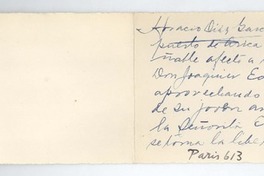 Horacio Díaz Garc
puerto de Arica
afecto a
Don Joaquín Ed
aprovechando
de su joven am
la Señorita E
se toma la libe
Paris 613